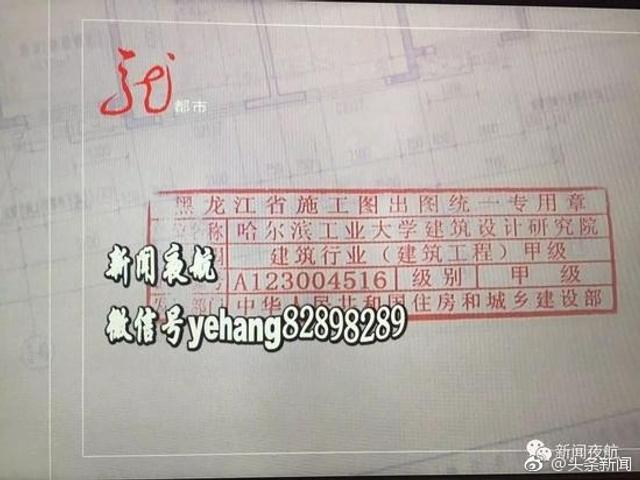 龙
都市
黑龙江省施工图出图统一专用章
称 哈尔滨工业大学建筑设计研究院
建筑行业（建筑工程）甲级
号 A123004516 级别 甲 级
部门 中华人民共和国住房和城乡建设部
新闻夜航
微信号yehang82898289
新闻夜航
@头条新闻